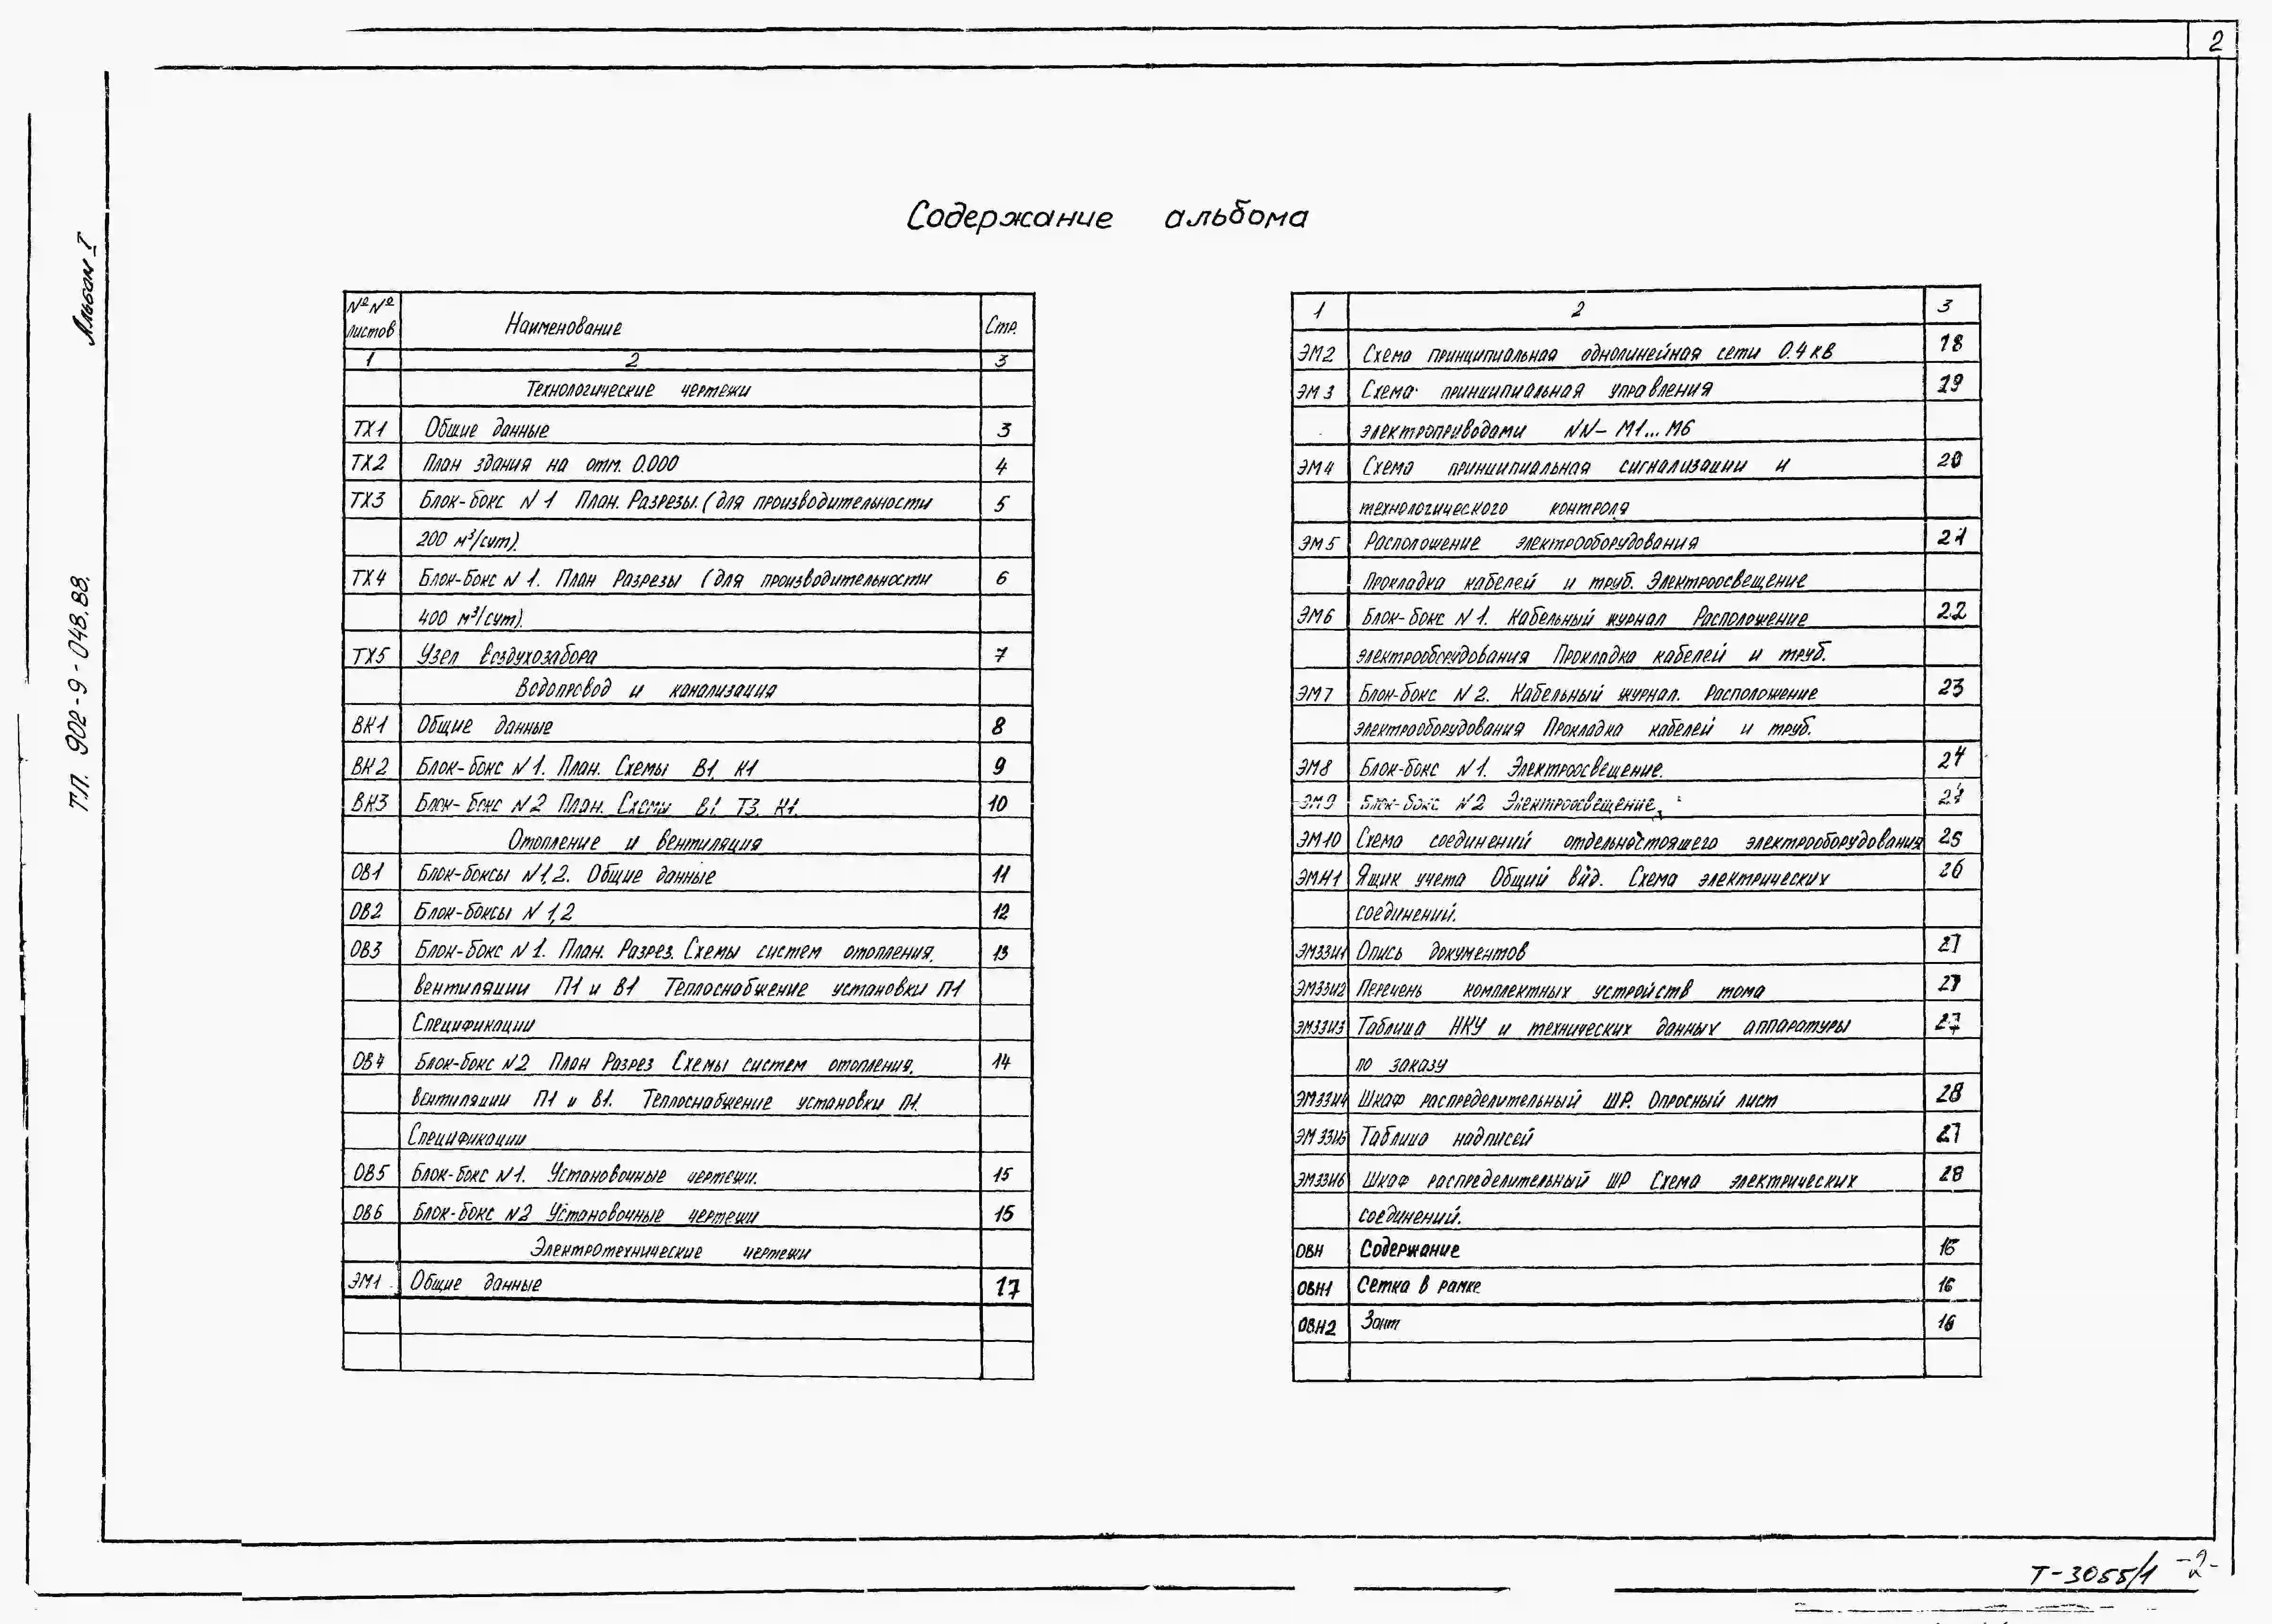 2
Альбом I
ТП. 902-9-048.88.
Содержание альбома
№№ листов Наименование Стр.
1 2 3
Технологические чертежи
ТХ1 Общие данные 3
ТХ2 План здания на отм. 0.000 4
ТХ3 Блок-бокс N 1 План. Разрезы. (для производительности 5
200 м³/сут).
ТХ4 Блок-бокс N 1. План Разрезы (для производительности 6
400 м³/сут).
ТХ5 Узел воздухозабора 7
Водопровод и канализация
ВК1 Общие данные 8
ВК2 Блок-бокс N 1. План. Схемы В1 К1 9
ВК3 Блок-бокс N 2 План. Схемы В1. Т3. К1. 10
Отопление и вентиляция
ОВ1 Блок-боксы N1,2. Общие данные 11
ОВ2 Блок-боксы N 1,2 12
ОВ3 Блок-бокс N 1. План. Разрез. Схемы систем отопления, 13
вентиляции П1 и В1 Теплоснабжение установки П1
Спецификации
ОВ4 Блок-бокс N2 План Разрез Схемы систем отопления, 14
вентиляции П1 и В1. Теплоснабжение установки П1.
Спецификации
ОВ5 Блок-бокс N1. Установочные чертежи. 15
ОВ6 Блок-бокс N2 Установочные чертежи 15
Электротехнические чертежи
ЭМ1 Общие данные 17
1 2 3
ЭМ2 Схема принципиальная однолинейная сети 0.4 кв 18
ЭМ3 Схема принципиальная управления 19
электроприводами NN- М1...М6
ЭМ4 Схема принципиальная сигнализации и 20
технологического контроля
ЭМ5 Расположение электрооборудования 21
Прокладка кабелей и труб. Электроосвещение
ЭМ6 Блок-бокс N 1. Кабельный журнал Расположение 22
электрооборудования Прокладка кабелей и труб.
ЭМ7 Блок-бокс N 2. Кабельный журнал. Расположение 23
электрооборудования Прокладка кабелей и труб.
ЭМ8 Блок-бокс N 1. Электроосвещение. 24
ЭМ9 Блок-бокс N 2 Электроосвещение. 24
ЭМ10 Схема соединений отдельностоящего электрооборудования 25
ЭМН1 Ящик учета Общий вид. Схема электрических 26
соединений.
ЭМЗЗИ1 Опись документов 27
ЭМЗЗИ2 Перечень комплектных устройств тома 27
ЭМЗЗИ3 Таблица НКУ и технических данных аппаратуры 27
по заказу
ЭМЗЗИ4 Шкаф распределительный ШР. Опросный лист 28
ЭМЗЗИ5 Таблица надписей 27
ЭМЗЗИ6 Шкаф распределительный ШР Схема электрических 28
соединений.
ОВН Содержание 16
ОВН1 Сетка в рамке 16
ОВН2 Зонт 16
Т-3055/1 -2-